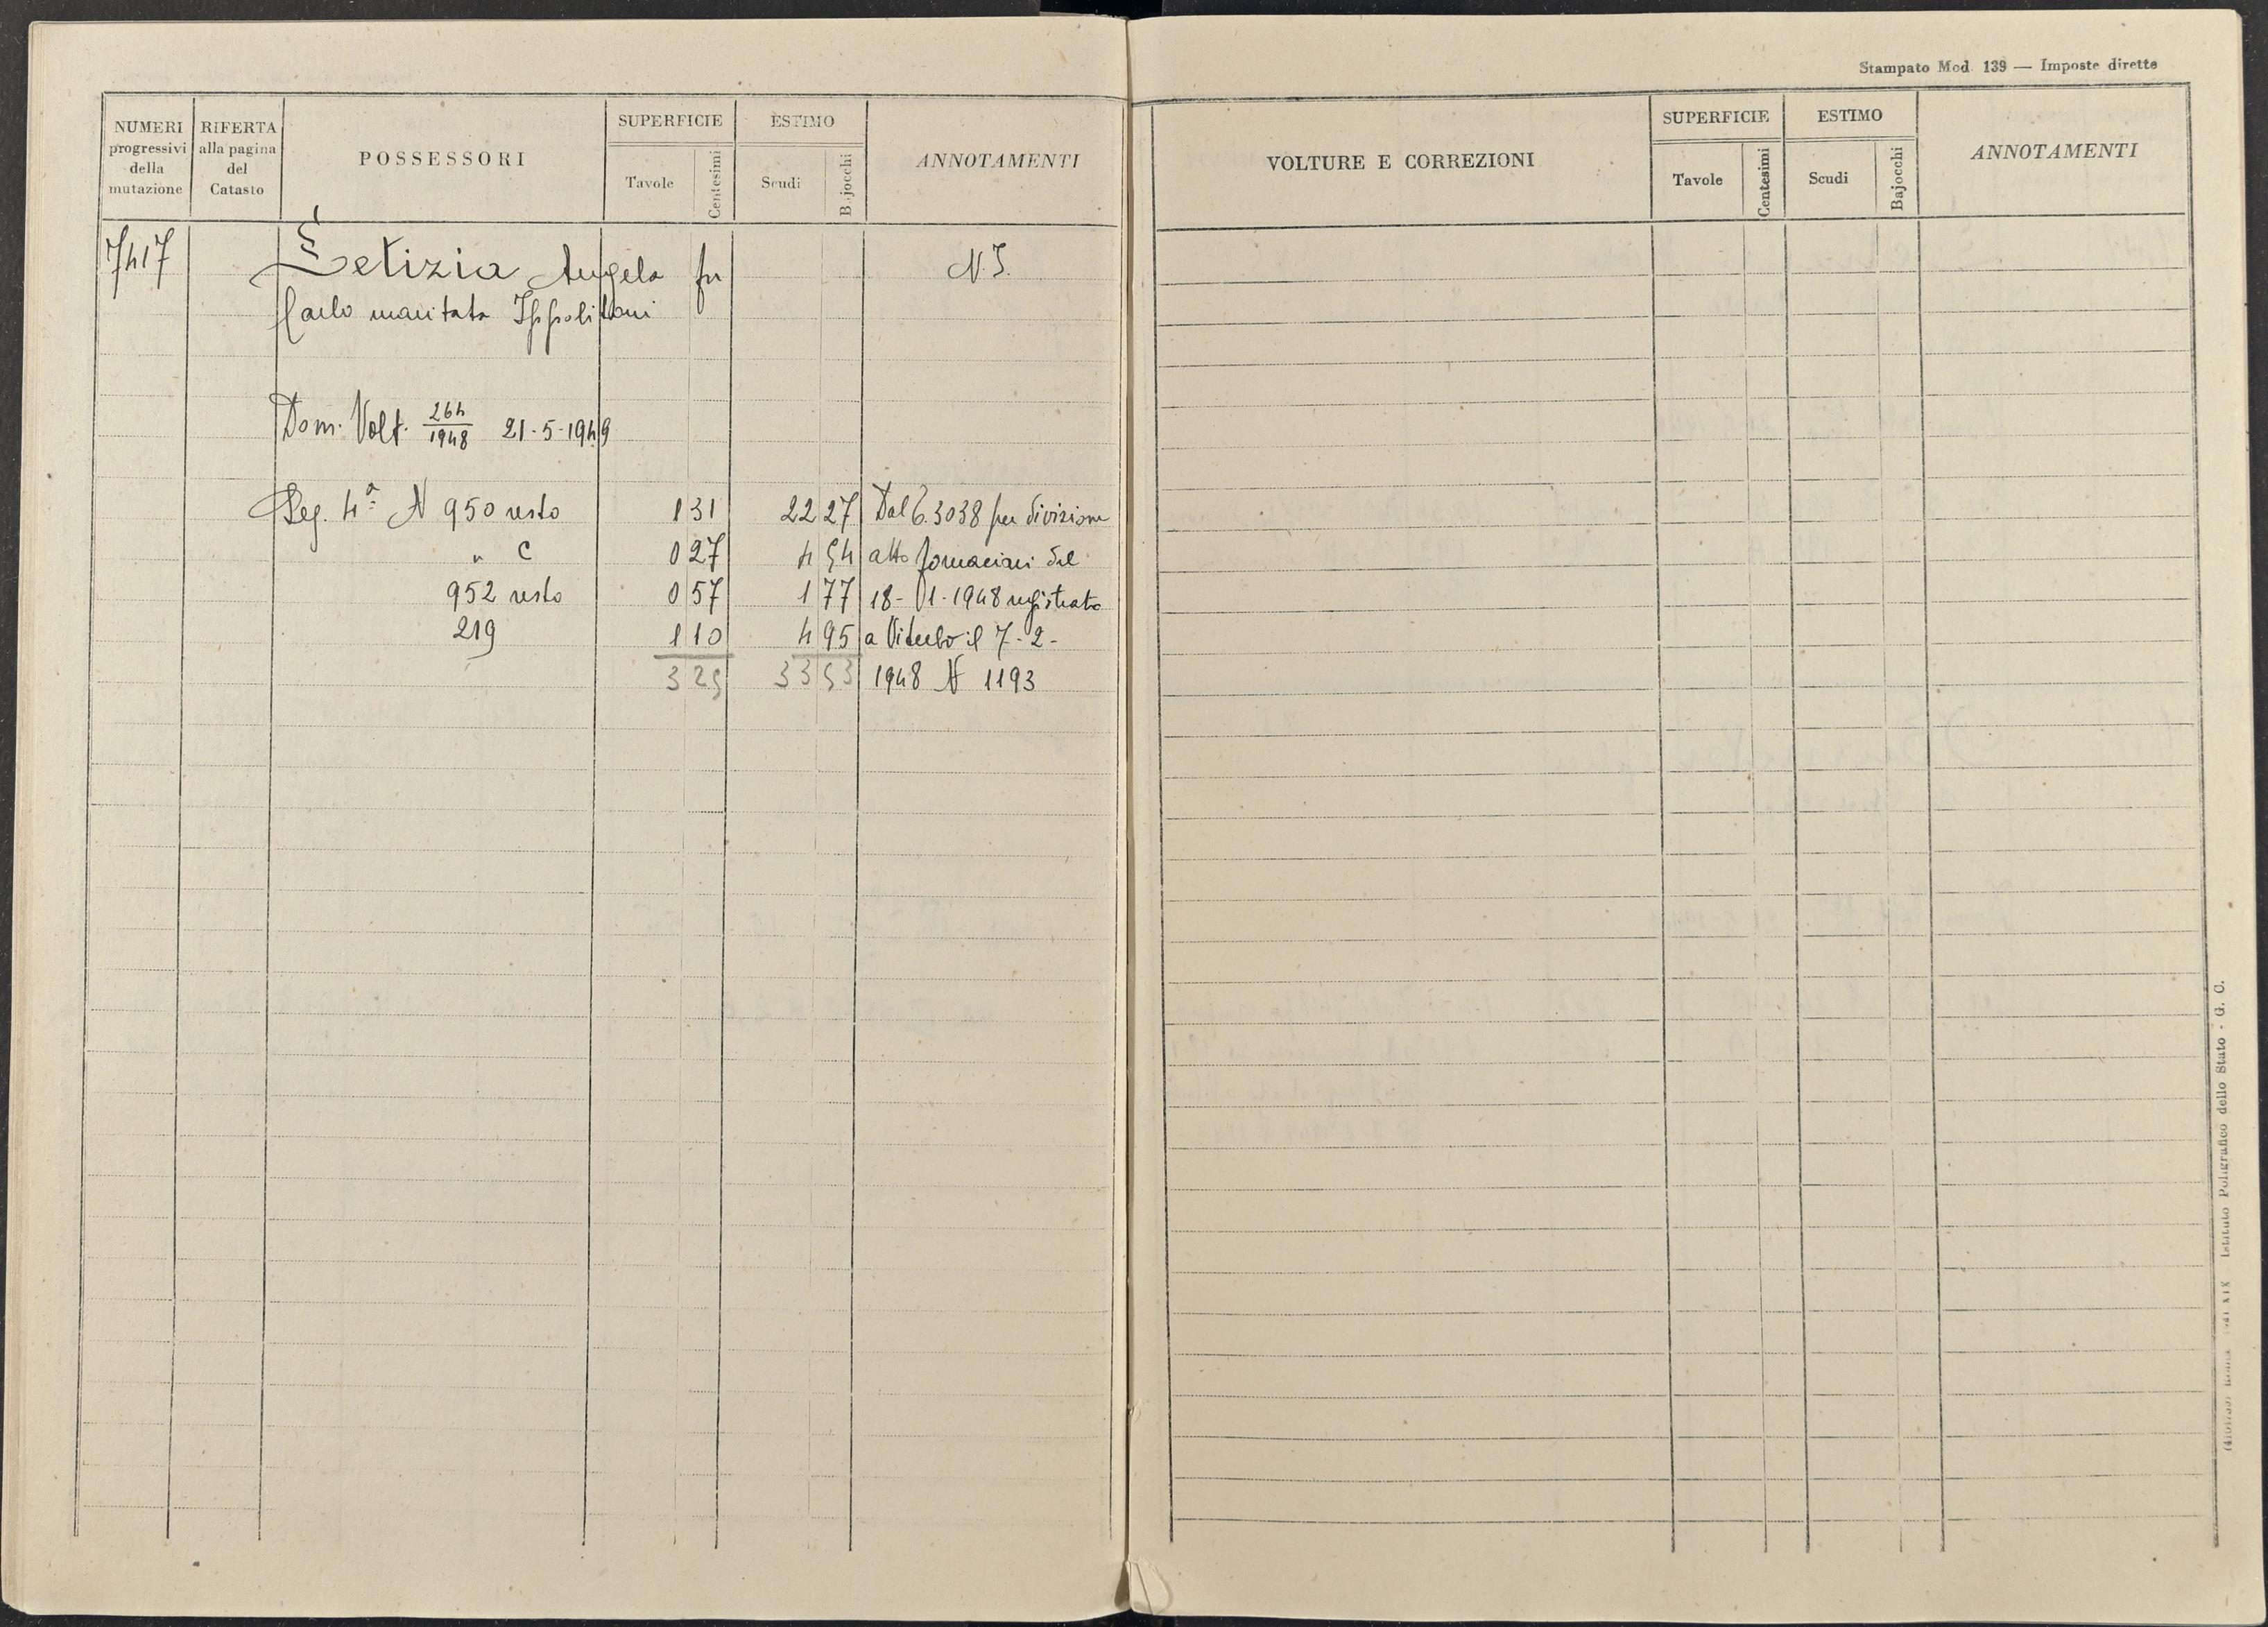 Stampato Mod. 139 — Imposte dirette
NUMERI progressivi della mutazione
RIFERTA alla pagina del Catasto
POSSESSORI
SUPERFICIE
Tavole
Centesimi
ESTIMO
Scudi
Bajocchi
ANNOTAMENTI
7417 Letizia Angela fu N.I.
Carlo maritata Ippolitoni
Dom. Volt. 264/1948 21-5-1949
Seg. 4ª N 950 resto 1 31 22 27 Dal 6. 3038 per divisione
" C 0 27 4 54 atto Fornaciari del
952 resto 0 57 1 77 18-01-1948 registrato
219 1 10 4 95 a Viterbo il 7-2-
3 25 33 53 1948 N 1193
VOLTURE E CORREZIONI
SUPERFICIE
Tavole
Centesimi
ESTIMO
Scudi
Bajocchi
ANNOTAMENTI
Istituto Poligrafico dello Stato - G. C.